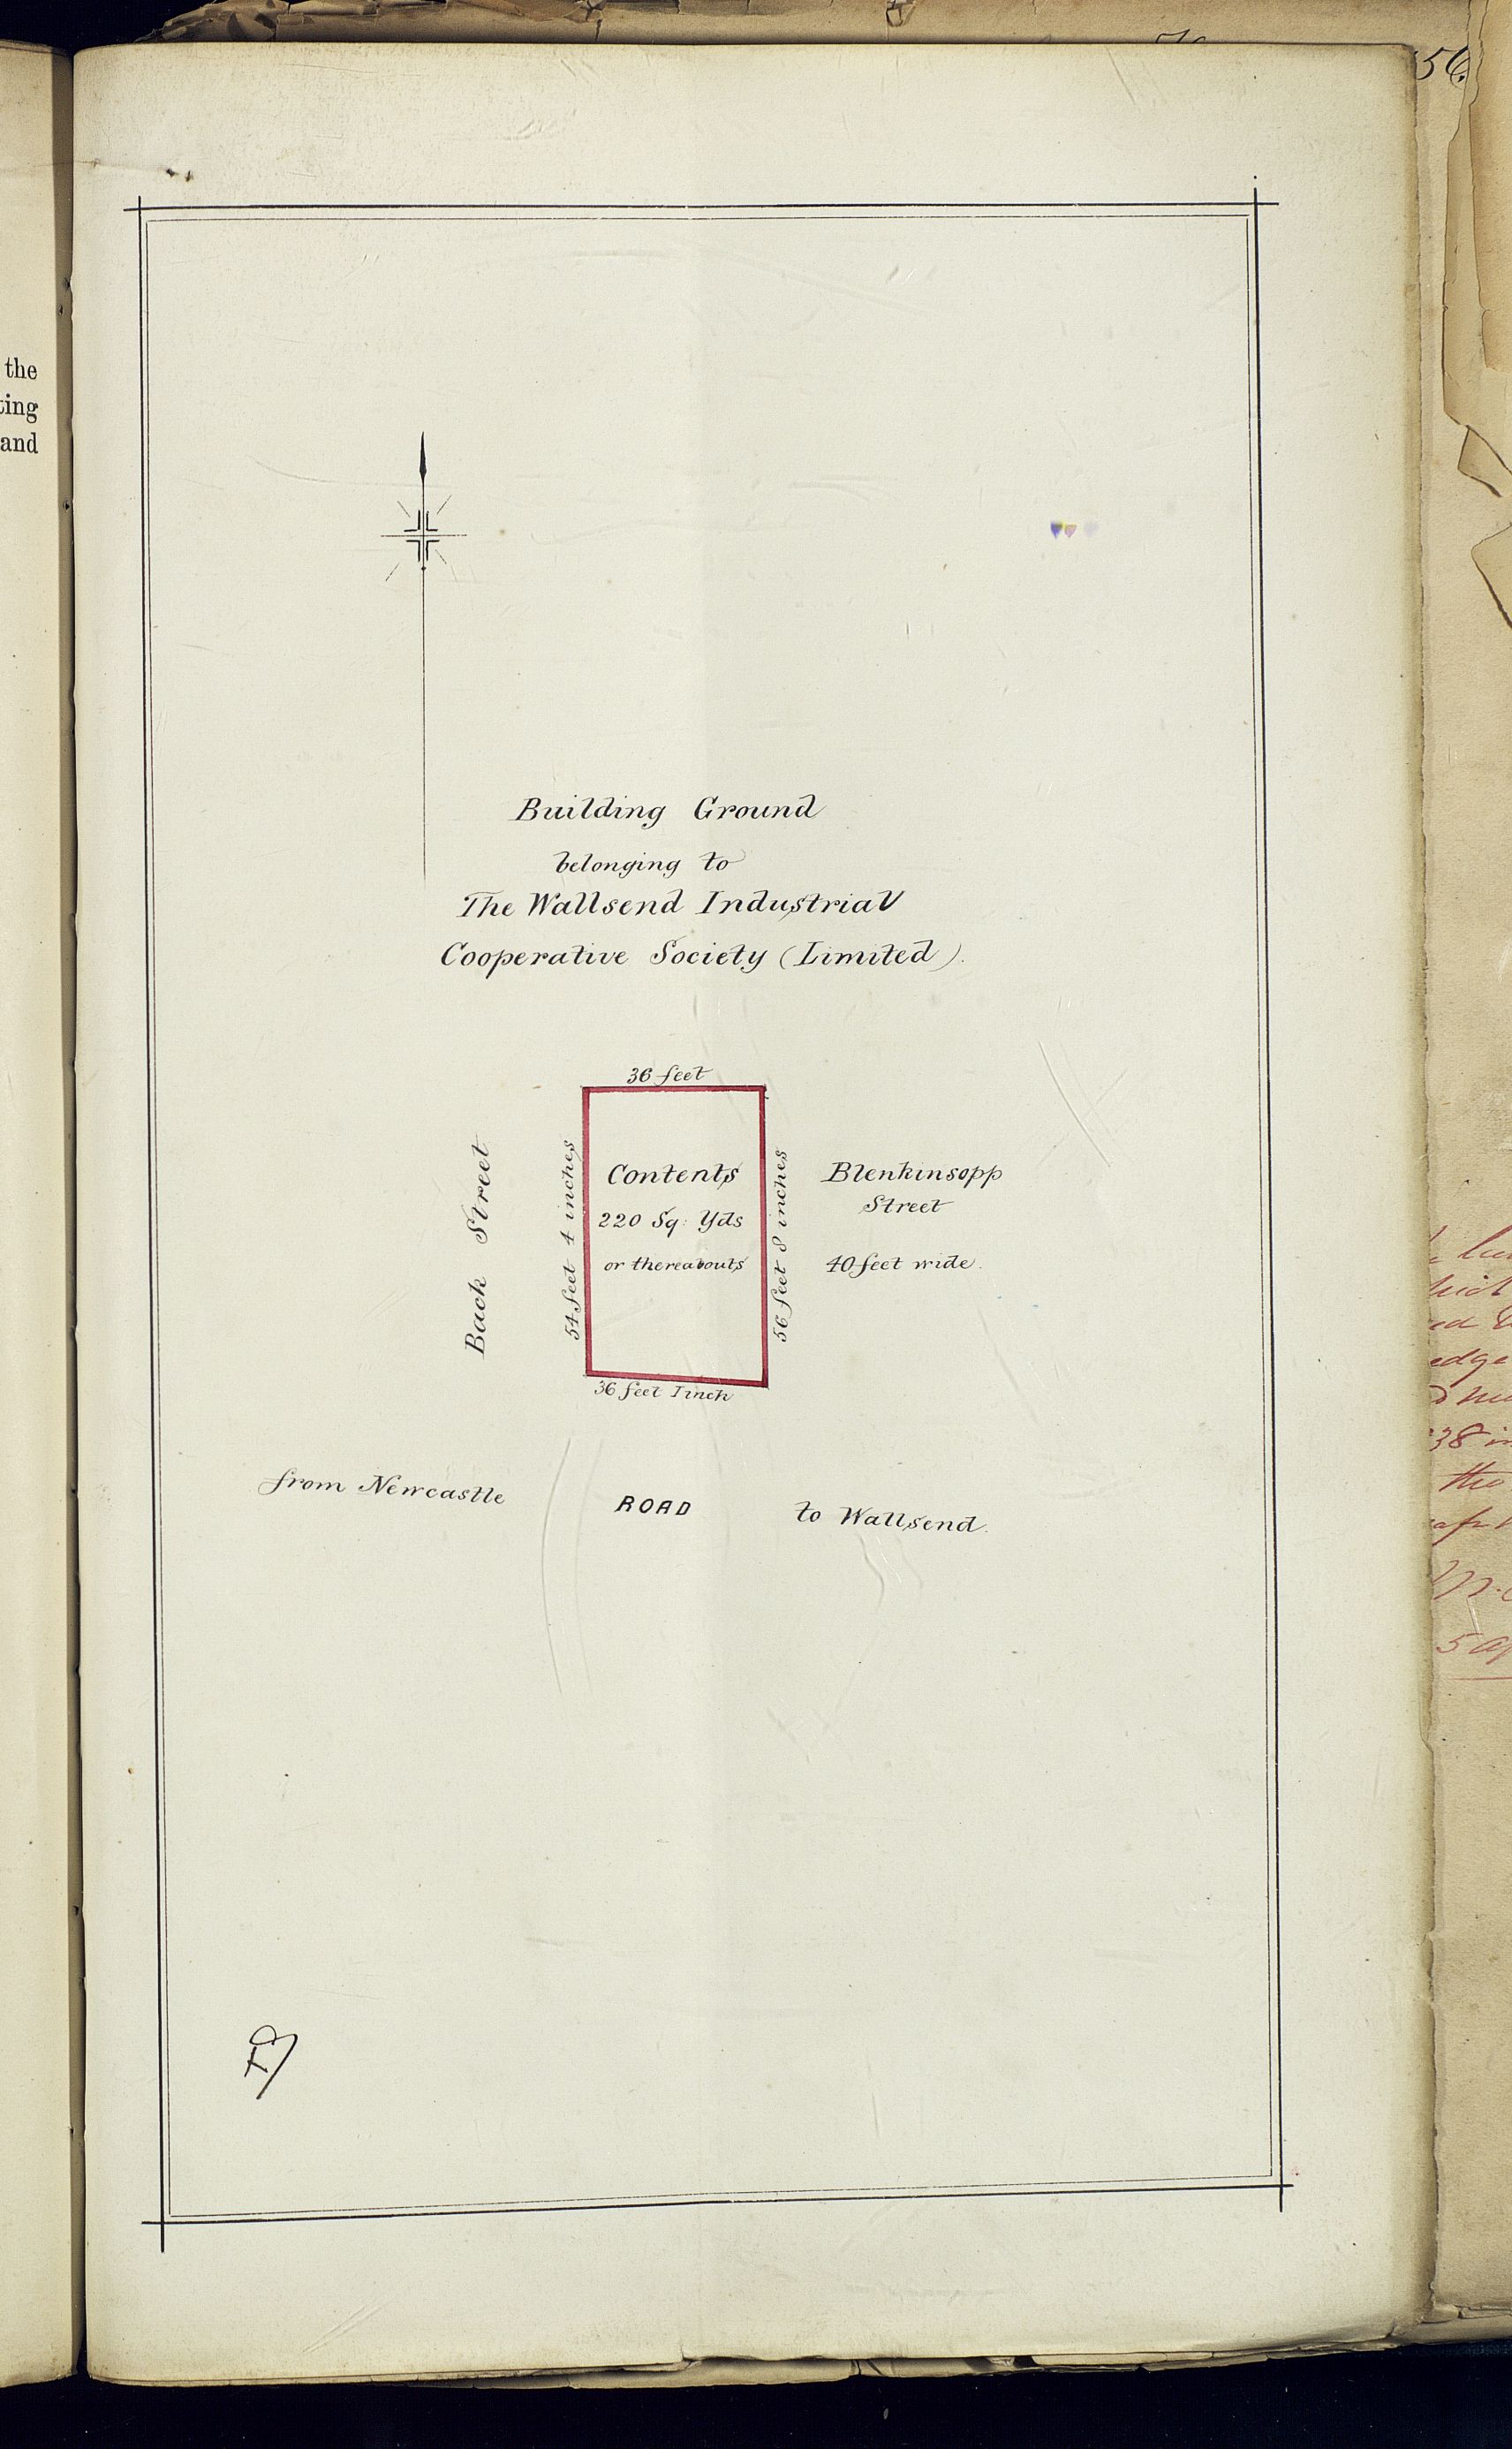 the
ting
and
56.
Building Ground
belonging to
The Wallsend Industrial
Cooperative Society (Limited).
36 feet
Back Street
54 feet 4 inches
Contents
220 Sq: Yds
or thereabouts
56 feet 8 inches
Blenkinsopp
Street
40 feet wide.
36 feet 1 inch
from Newcastle ROAD to Wallsend.
edge
38 in
the